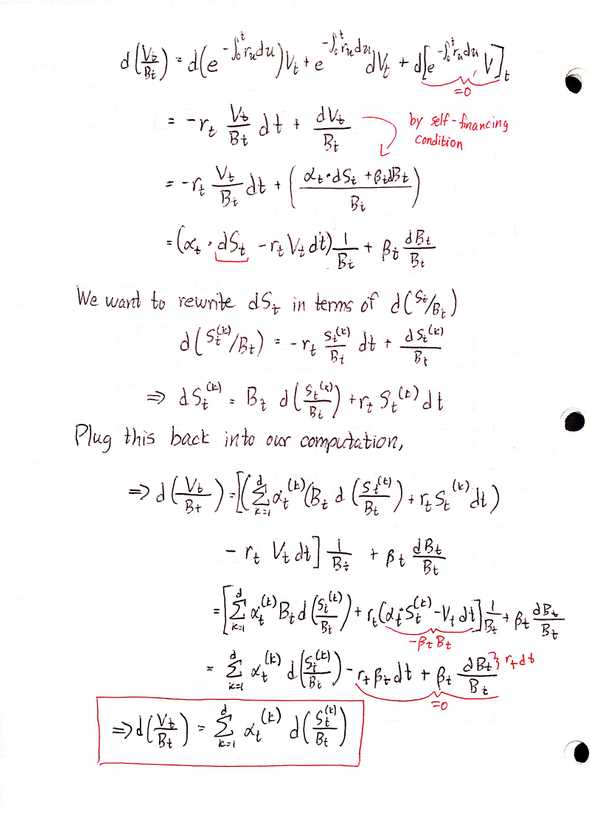 d(V_t/B_t) = d(e^{-∫_0^t r_u du}) V_t + e^{-∫_0^t r_u du} dV_t + d[e^{-∫_0^t r_u du}, V]_t
=0
= -r_t V_t/B_t dt + dV_t/B_t
by self-financing
condition
= -r_t V_t/B_t dt + (α_t · dS_t + β_t dB_t / B_t)
= (α_t · dS_t - r_t V_t dt) 1/B_t + β_t dB_t/B_t
We want to rewrite dS_t in terms of d(S_t/B_t)
d(S_t^{(k)}/B_t) = -r_t S_t^{(k)}/B_t dt + dS_t^{(k)}/B_t
⇒ dS_t^{(k)} = B_t d(S_t^{(k)}/B_t) + r_t S_t^{(k)} dt
Plug this back into our computation,
⇒ d(V_t/B_t) = [(Σ_{k=1}^d α_t^{(k)} (B_t d(S_t^{(k)}/B_t) + r_t S_t^{(k)} dt)
- r_t V_t dt] 1/B_t + β_t dB_t/B_t
= [Σ_{k=1}^d α_t^{(k)} B_t d(S_t^{(k)}/B_t) + r_t (α_t · S_t^{(k)} - V_t dt] 1/B_t + β_t dB_t/B_t
-β_t B_t
= Σ_{k=1}^d α_t^{(k)} d(S_t^{(k)}/B_t) - r_t β_t dt + β_t dB_t/B_t } r_t dt
=0
⇒ d(V_t/B_t) = Σ_{k=1}^d α_t^{(k)} d(S_t^{(k)}/B_t)